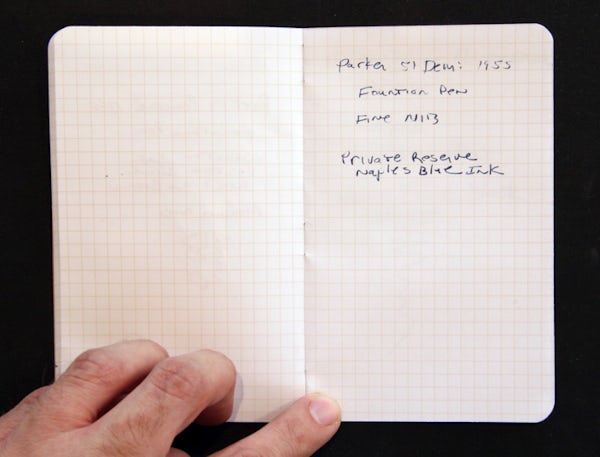 Parker 51 Demi 1955
Fountian Pen
Fine NIB
Private Reserve
Naples Blue Ink